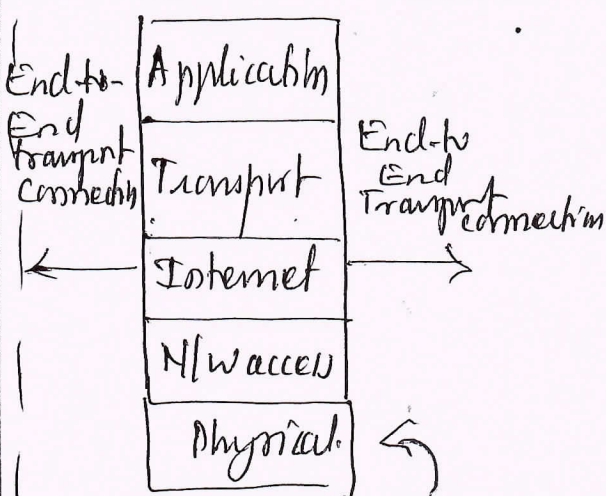 End-to-
End
Transport
Connection
Application
Transport
Internet
N/W access
Physical.
End-to
End
Transport
connection